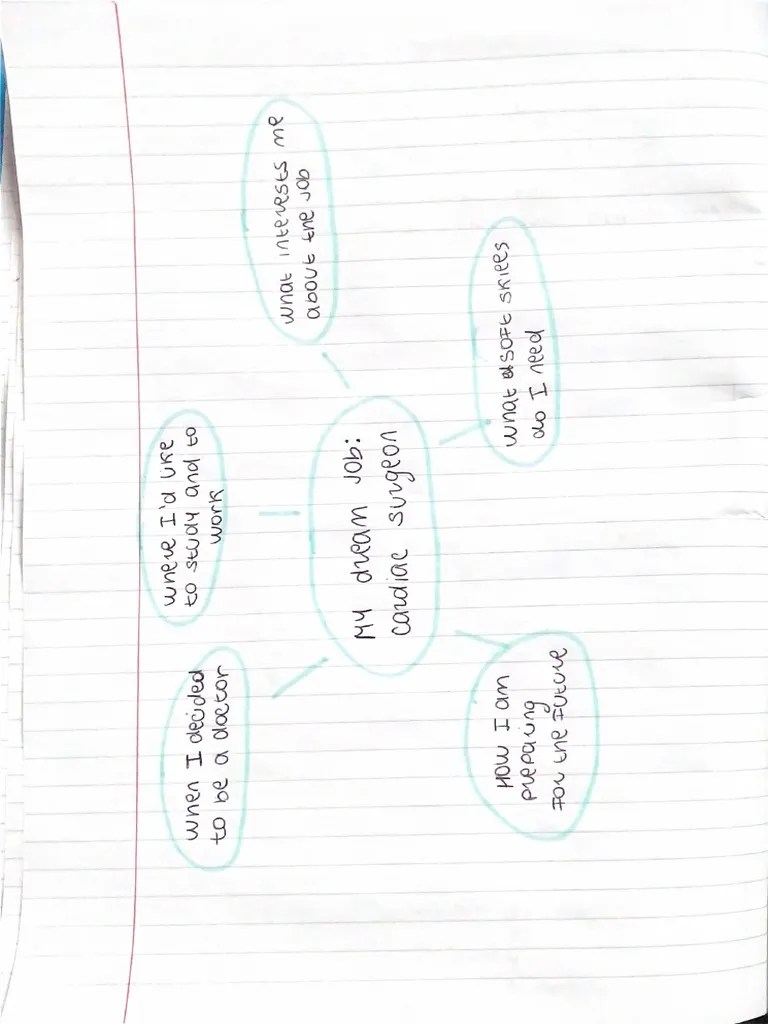 when I decided
to be a doctor
where I'd like
to study and to
work
what interests me
about the job
My dream job:
cardiac surgeon
How I am
preparing
for the future
what soft skills
do I need